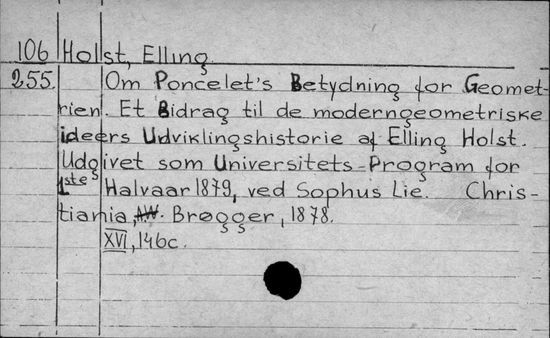 106 Holst, Elling.
255. Om Poncelet's Betydning for Geomet-
rien. Et Bidrag til de moderngeometriske
ideers Udviklingshistorie af Elling Holst.
Udgivet som Universitets-Program for
1ste Halvaar 1879, ved Sophus Lie. Chris-
tiania, A.W. Brøgger, 1878.
XVI, 146c.